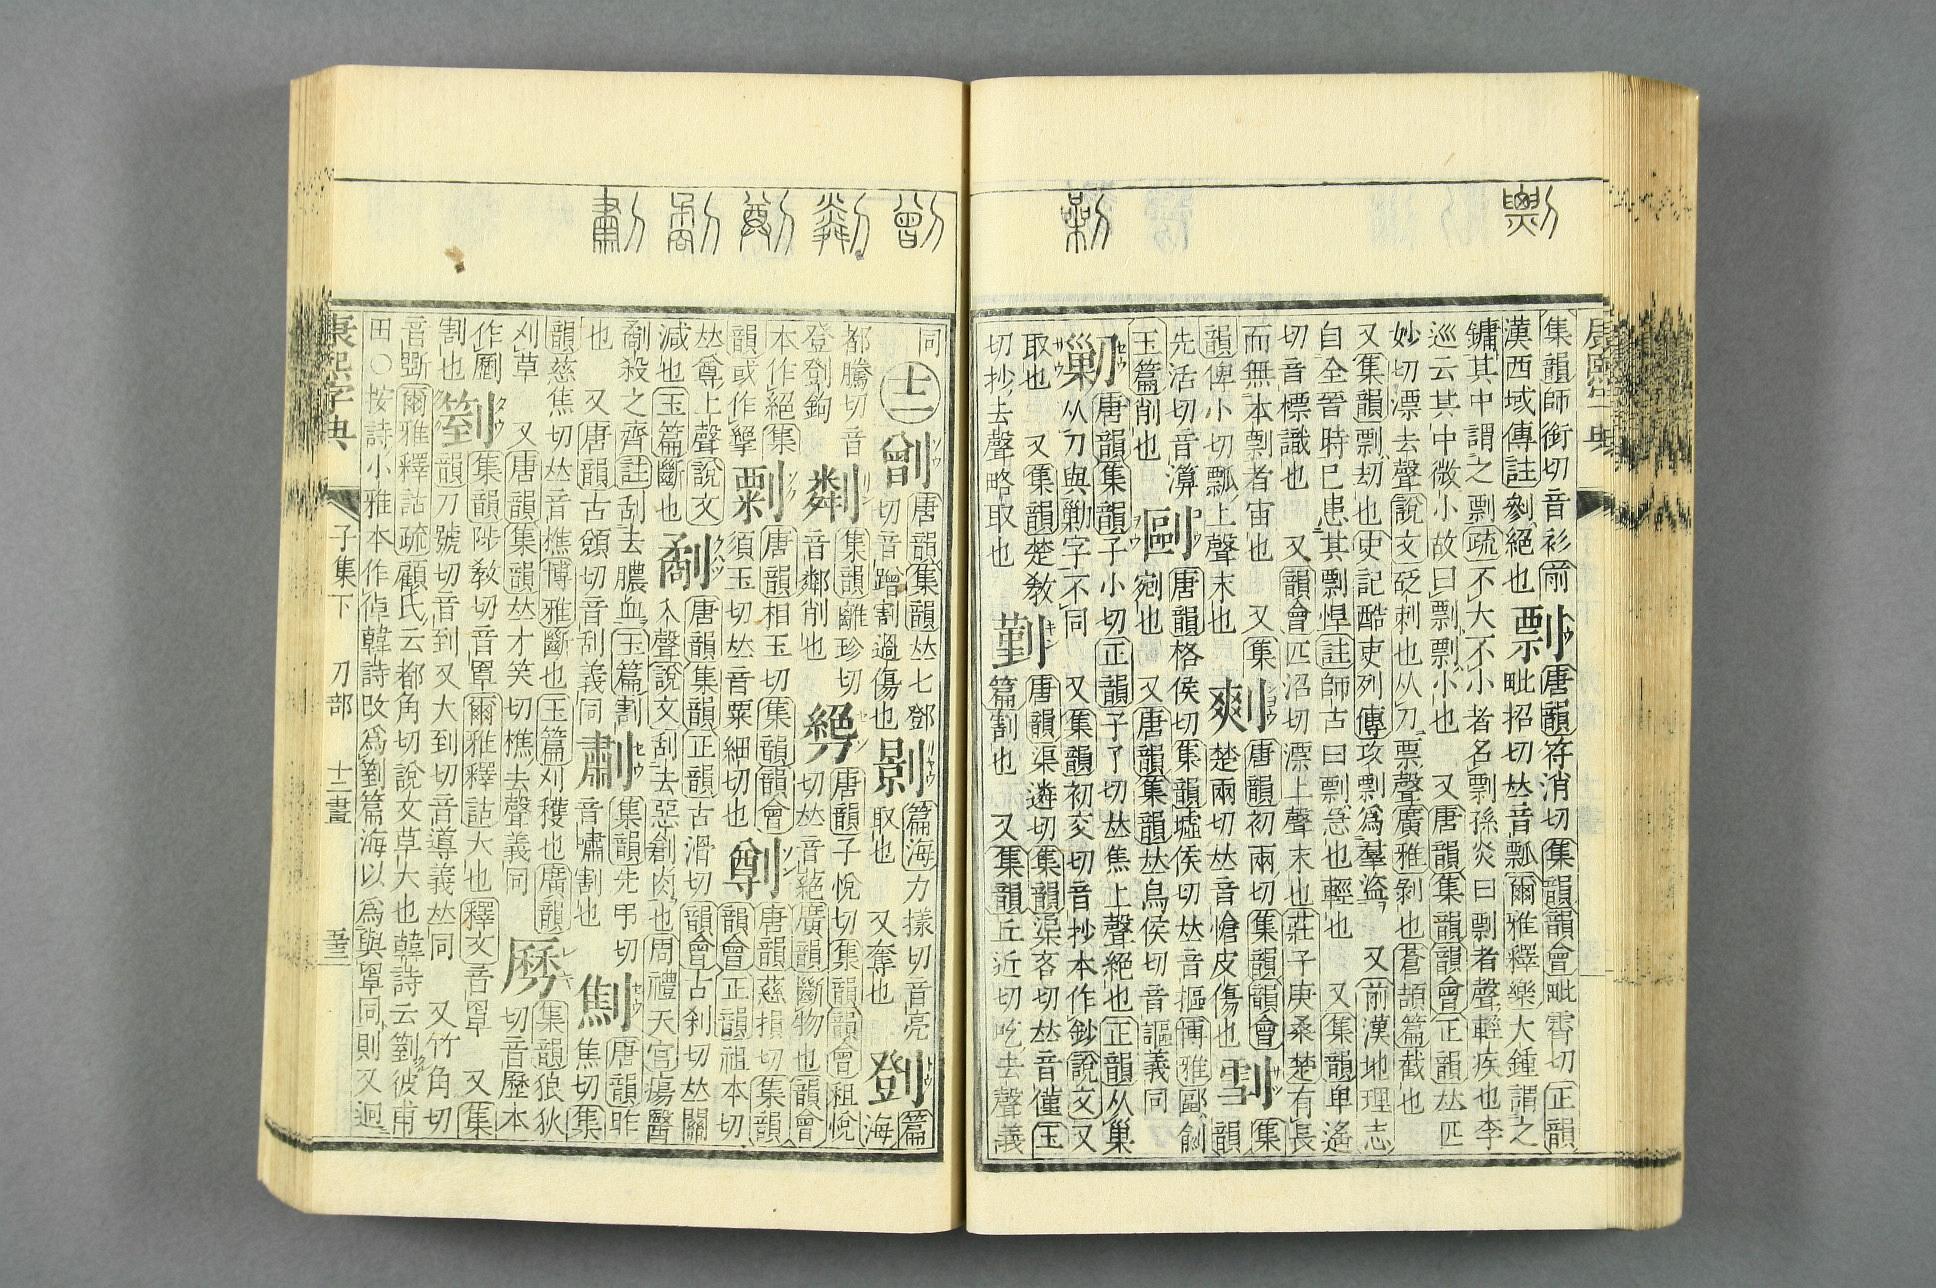 康熙字典
集韻師銜切音衫前 剽 唐韻符消切集韻韻會毗霄切正韻
漢西域傳註剼絕也 毗招切𠀤音瓢爾雅釋樂大鍾謂之
鏞其中謂之剽疏不大不小者名剽孫炎曰剽者聲輕疾也李
巡云其中微小故曰剽剽小也 又唐韻集韻韻會正韻𠀤匹
妙切漂去聲說文砭刺也从刀票聲廣雅剝也蒼頡篇截也
又集韻剽劫也史記酷吏列傳攻剽爲羣盜 又前漢地理志
自全晉時已患其剽悍註師古曰剽急也輕也 又集韻卑遙
切音標識也 又韻會匹沼切漂上聲末也莊子庚桑楚有長
而無本剽者宙也 又集 㼽 唐韻初兩切集韻韻會 集
韻俾小切瓢上聲末也 楚兩切𠀤音愴皮傷也 韻
先活切音 剾 唐韻格侯切集韻墟侯切𠀤音摳博雅剾剜
玉篇削也 剜也 又唐韻集韻𠀤烏侯切音謳義同
剿 唐韻集韻子小切正韻子了切𠀤焦上聲絕也正韻从巢
从刀與勦字不同 又集韻初交切音抄本作鈔說文叉
取也 又集韻楚敎 唐韻渠遴切集韻渠吝切𠀤音僅玉
切抄去聲略取也 篇割也 又集韻丘近切吃去聲義
同 十二 唐韻集韻𠀤七鄧 篇海力㨾切音亮 篇
切音蹭割過傷也 取也 又奪也 海
都騰切音 集韻離珍切 唐韻子悅切集韻韻會租悅
登鉤 音鄰削也 切𠀤音蕝廣韻斷物也韻會
本作絕集 㔄 唐韻相玉切集韻韻會 唐韻慈損切集韻
韻或作 須玉切𠀤音粟細切也 韻會正韻祖本切
𠀤尊上聲說文 劀 唐韻集韻正韻古滑切韻會古刹切𠀤關
減也玉篇斷也 入聲說文刮去惡創肉也周禮天官瘍醫
劀殺之齊註刮去膿血玉篇割 集韻先弔切 唐韻昨
也 又唐韻古切音刮義同 音嘯割也 焦切集
韻慈焦切𠀤音樵博雅斷也玉篇刈穫也廣韻 集韻狼狄
刈草 又唐韻集韻𠀤才笑切樵去聲義同 切音歷本
作劚 箌 集韻陟敎切音罩爾雅釋詁大也釋文音罩 又集
割也 韻刀號切音到又大到切音導義𠀤同 又竹角切
音斲爾雅釋詁疏顧氏云都角切說文草大也韓詩云箌彼甫
田○按詩小雅本作倬韓詩改爲箌篇海以爲與罩同則又迥
康熙字典 子集下 刀部 十二畫